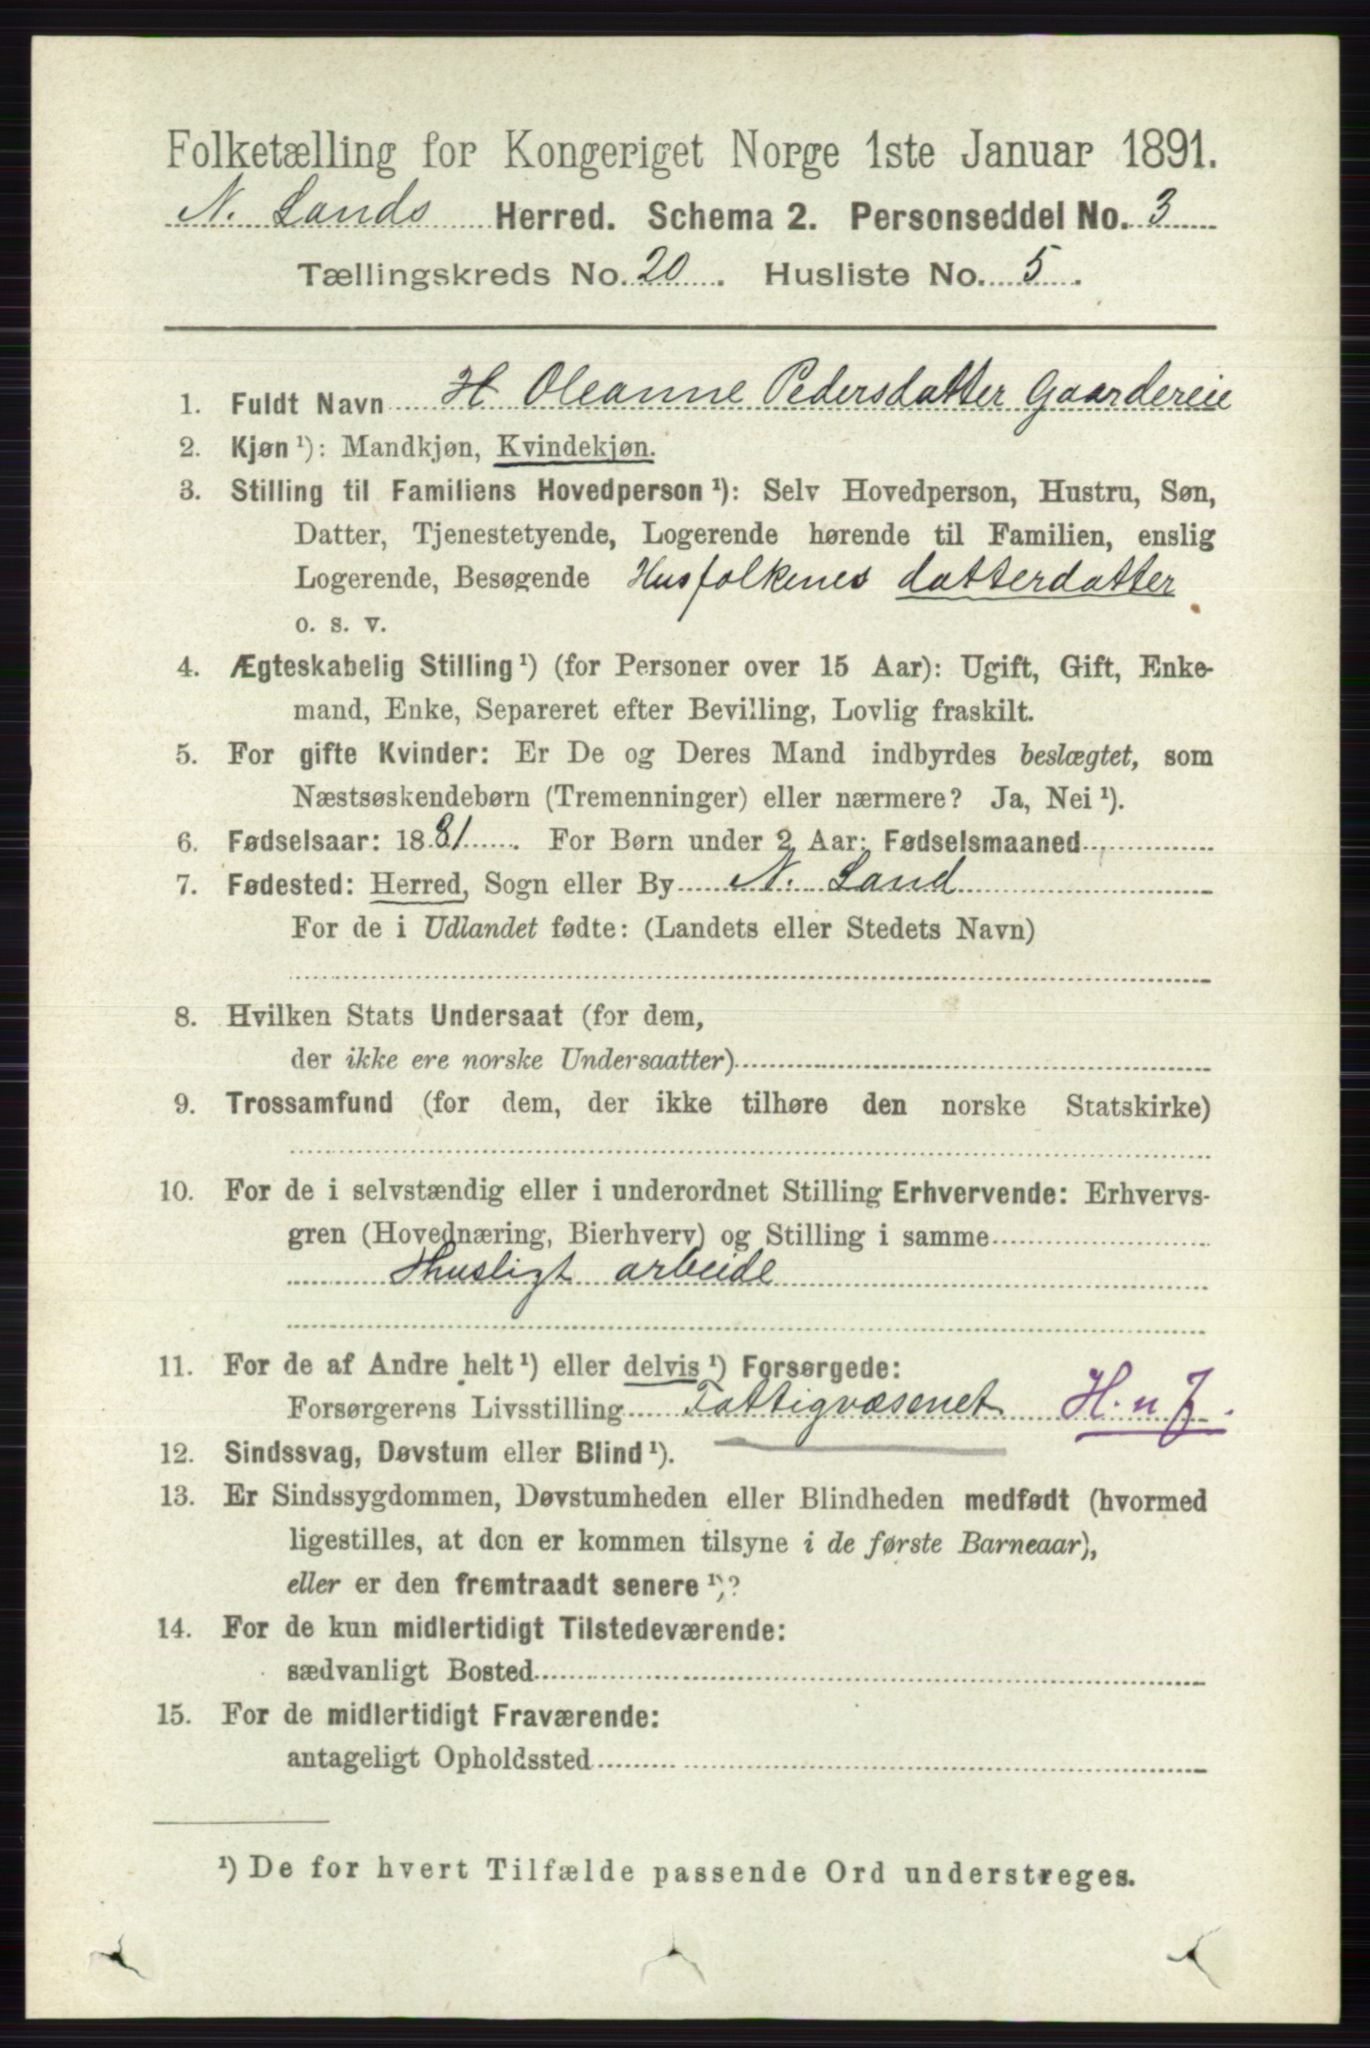 Folketælling for Kongeriget Norge 1ste Januar 1891.
N. Lands Herred. Schema 2. Personseddel No. 3
Tællingskreds No. 20. Husliste No. 5.
1. Fuldt Navn H Oleanne Pedersdatter Gaardereie
2. Kjøn ¹): Mandkjøn, Kvindekjøn.
3. Stilling til Familiens Hovedperson ¹): Selv Hovedperson, Hustru, Søn,
Datter, Tjenestetyende, Logerende hørende til Familien, enslig
Logerende, Besøgende Husfolkenes datterdatter
o. s. v.
4. Ægteskabelig Stilling ¹) (for Personer over 15 Aar): Ugift, Gift, Enke-
mand, Enke, Separeret efter Bevilling, Lovlig fraskilt.
5. For gifte Kvinder: Er De og Deres Mand indbyrdes beslægtet, som
Næstsøskendebørn (Tremenninger) eller nærmere? Ja, Nei ¹).
6. Fødselsaar: 1881. For Børn under 2 Aar: Fødselsmaaned
7. Fødested: Herred, Sogn eller By N. Land
For de i Udlandet fødte: (Landets eller Stedets Navn)
8. Hvilken Stats Undersaat (for dem,
der ikke ere norske Undersaatter)
9. Trossamfund (for dem, der ikke tilhøre den norske Statskirke)
10. For de i selvstændig eller i underordnet Stilling Erhvervende: Erhvervs-
gren (Hovednæring, Bierhverv) og Stilling i samme
Husligt arbeide
11. For de af Andre helt ¹) eller delvis ¹) Forsørgede:
Forsørgerens Livsstilling Fattigvæsenet
12. Sindssvag, Døvstum eller Blind ¹).
13. Er Sindssygdommen, Døvstumheden eller Blindheden medfødt (hvormed
ligestilles, at den er kommen tilsyne i de første Barneaar),
eller er den fremtraadt senere ¹)?
14. For de kun midlertidigt Tilstedeværende:
sædvanligt Bosted
15. For de midlertidigt Fraværende:
antageligt Opholdssted
¹) De for hvert Tilfælde passende Ord understreges.